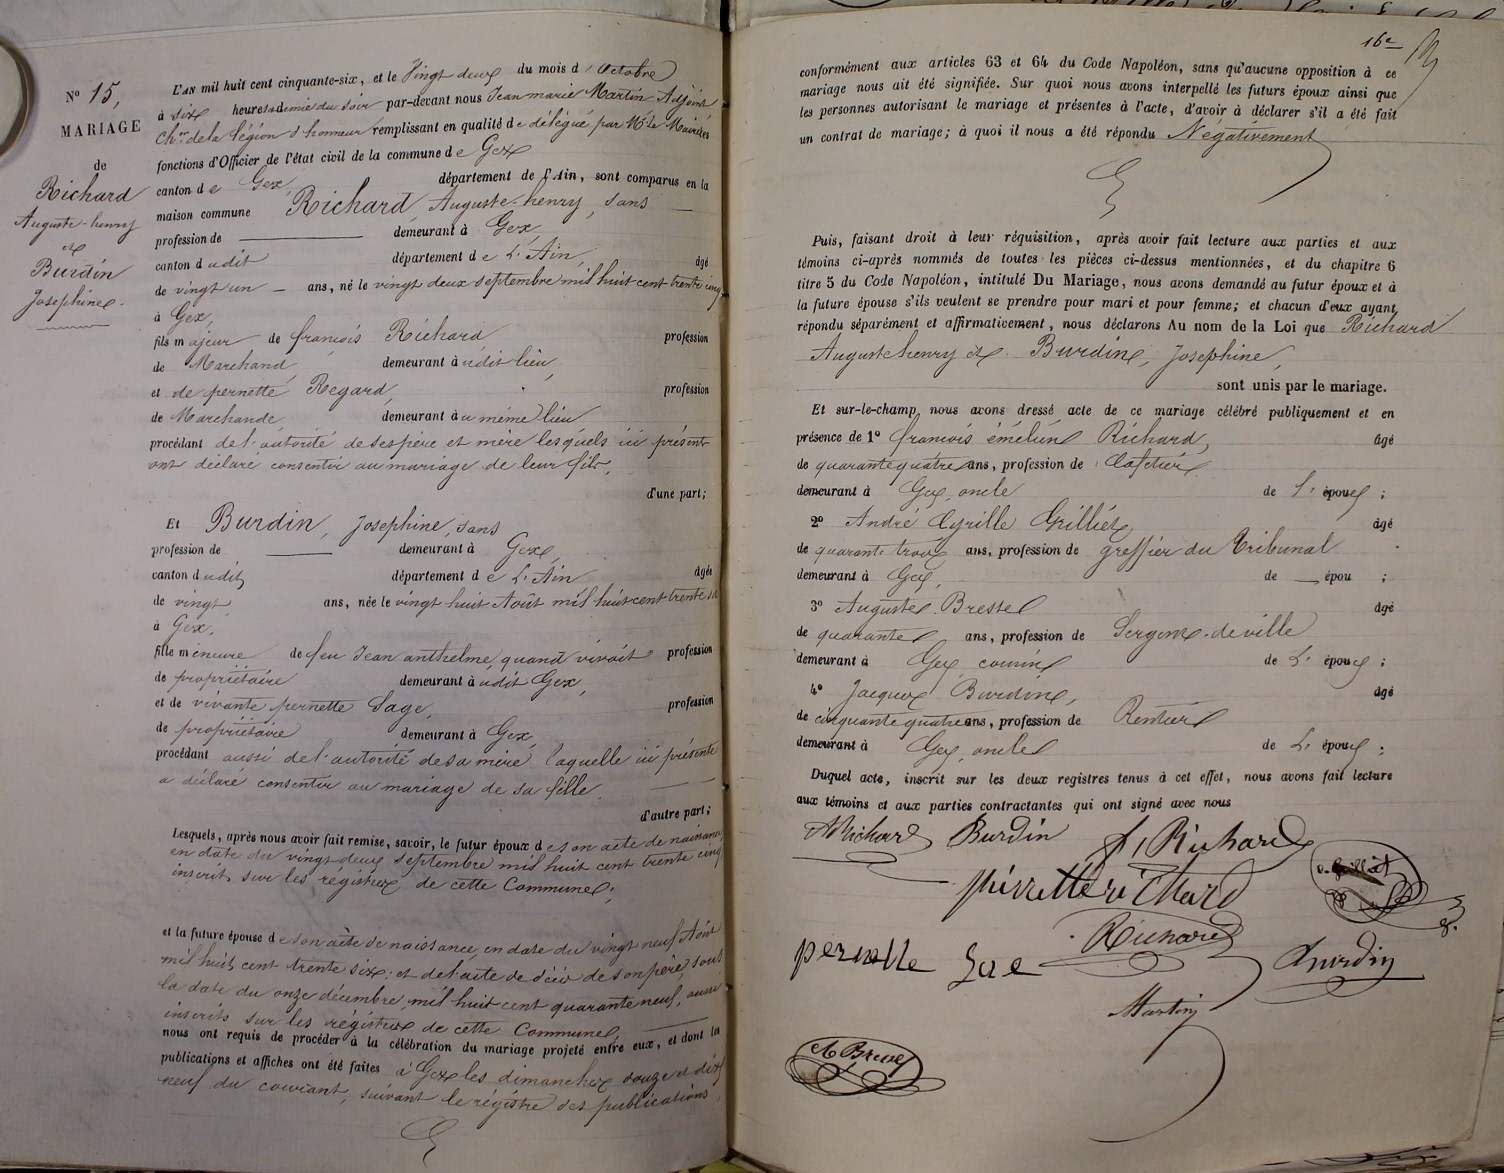 N° 15,
MARIAGE
de
Richard
Auguste-henry
et
Burdin
Josephine.
L'AN mil huit cent cinquante-six, et le Vingt deux du mois d'Octobre
à six heures et demie du soir par-devant nous Jean marie Martin Adjoint
Cher de la légion d'honneur remplissant en qualité de délégué par Mr le Maire les
fonctions d'Officier de l'état civil de la commune de Gex
canton de Gex, département de l'Ain, sont comparus en la
maison commune Richard, Auguste-henry, sans
profession de — demeurant à Gex,
canton dudit département de L'Ain, âgé
de vingt un — ans, né le vingt deux septembre mil huit cent trente cinq
à Gex,
fils majeur de françois Richard profession
de Marchand, demeurant àudit lieu,
et de pernette Regard, profession
de Marchande, demeurant àu même lieu
procédant de l'autorité de ses père et mère lesquels ici présents
ont déclaré consentir au mariage de leur fils,
d'une part;
Et Burdin, Josephine, sans
profession de — demeurant à Gex,
canton dudit département de L'Ain âgée
de vingt ans, née le vingt huit Août mil huit cent trente six
à Gex,
fille mineure de feu Jean anthelme, quand vivait profession
de propriétaire demeurant àudit Gex,
et de vivante pernette Sage, profession
de propriétaire demeurant à Gex,
procédant aussi de l'autorité de sa mère laquelle ici présente
a déclaré consentir au mariage de sa fille,
d'autre part;
Lesquels, après nous avoir fait remise, savoir, le futur époux de son acte de naissance
en date du vingt deux septembre mil huit cent trente cinq
inscrit sur les régistres de cette Commune;
et la future épouse de son acte de naissance, en date du vingt neuf Août
mil huit cent trente six; et de l'acte de décès de son père, sous
la date du onze décembre, mil huit cent quarante neuf, aussi
inscrits sur les régistres de cette Commune,
nous ont requis de procéder à la célébration du mariage projeté entre eux, et dont les
publications et affiches ont été faites à Gex les dimanches douze et dix
neuf du courant, suivant le régistre des publications,
16e
conformément aux articles 63 et 64 du Code Napoléon, sans qu'aucune opposition à ce
mariage nous ait été signifiée. Sur quoi nous avons interpellé les futurs époux ainsi que
les personnes autorisant le mariage et présentes à l'acte, d'avoir à déclarer s'il a été fait
un contrat de mariage; à quoi il nous a été répondu Négativement
Puis, faisant droit à leur réquisition, après avoir fait lecture aux parties et aux
témoins ci-après nommés de toutes les pièces ci-dessus mentionnées, et du chapitre 6
titre 5 du Code Napoléon, intitulé Du Mariage, nous avons demandé au futur époux et à
la future épouse s'ils veulent se prendre pour mari et pour femme; et chacun d'eux ayant
répondu séparément et affirmativement, nous déclarons Au nom de la Loi que Richard
Auguste henry et Burdin, Josephine,
sont unis par le mariage.
Et sur-le-champ, nous avons dressé acte de ce mariage célébré publiquement et en
présence de 1° françois émélien Richard, âgé
de quarante quatre ans, profession de Cafetier
demeurant à Gex, oncle de l'époux;
2° André Cyrille Grilliet, âgé
de quarante trois ans, profession de greffier du Tribunal
demeurant à Gex, de — épou ;
3° Auguste Brestel âgé
de quarante ans, profession de Sergent-de ville
demeurant à Gex, cousin de L'époux;
4° Jacques Burdin, âgé
de cinquante quatre ans, profession de Rentier
demeurant à Gex, oncle de L'époux;
Duquel acte, inscrit sur les deux registres tenus à cet effet, nous avons fait lecture
aux témoins et aux parties contractantes qui ont signé avec nous
ARichard Burdin f, Richard
Richard
Burdin
Martin